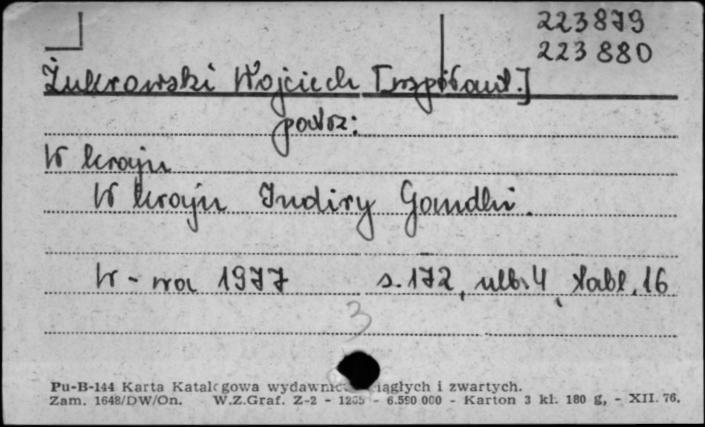 223879
223880
Żukrowski Wojciech [współaut.]
patrz:
W kraju
W kraju Indiry Gandhi.
W-wa 1977 s. 172, nlb. 4, tabl. 16
3
Pu-B-144 Karta Katalogowa wydawnic ciągłych i zwartych.
Zam. 1648/DW/On. W.Z.Graf. Z-2 - 1265 - 6.590 000 - Karton 3 kl. 180 g, - XII. 76.